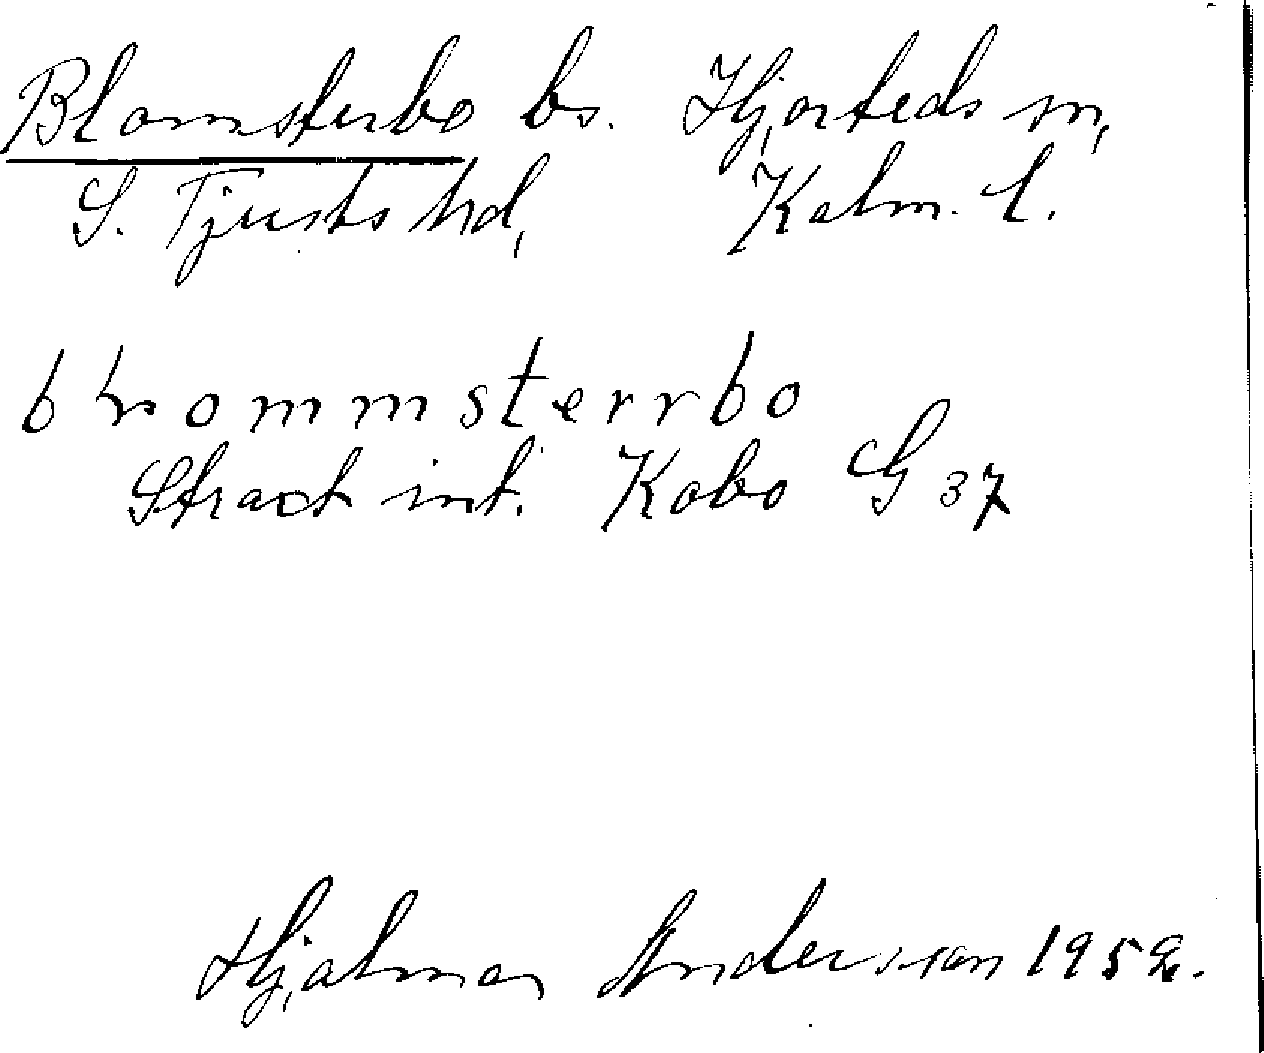 Blomsterbo bs. Hjorteds sn,
S. Tjusts hd, Kalm. l.
blommsterrbo
Strax int. Kabo G 37
Hjalmar Andersson 1952.